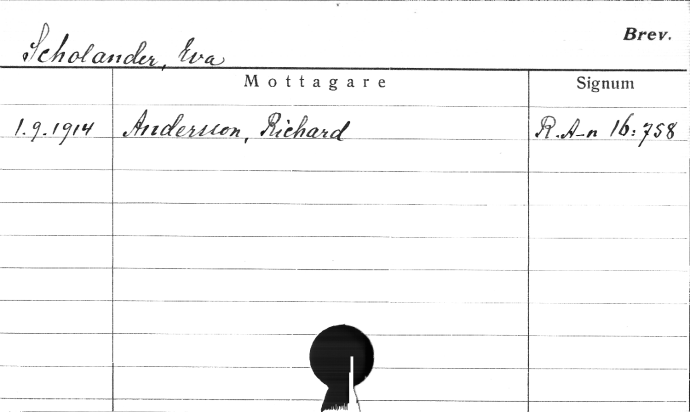 Brev.
Scholander, Eva
Mottagare Signum
1.9.1914 Andersson, Richard R. A-n 16:758